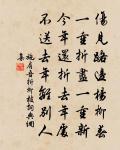 傷見路邊楊柳春
一重折盡一重新
今年還折去年處
不送去年離別人
施肩吾折楊柳枝詞典網
集